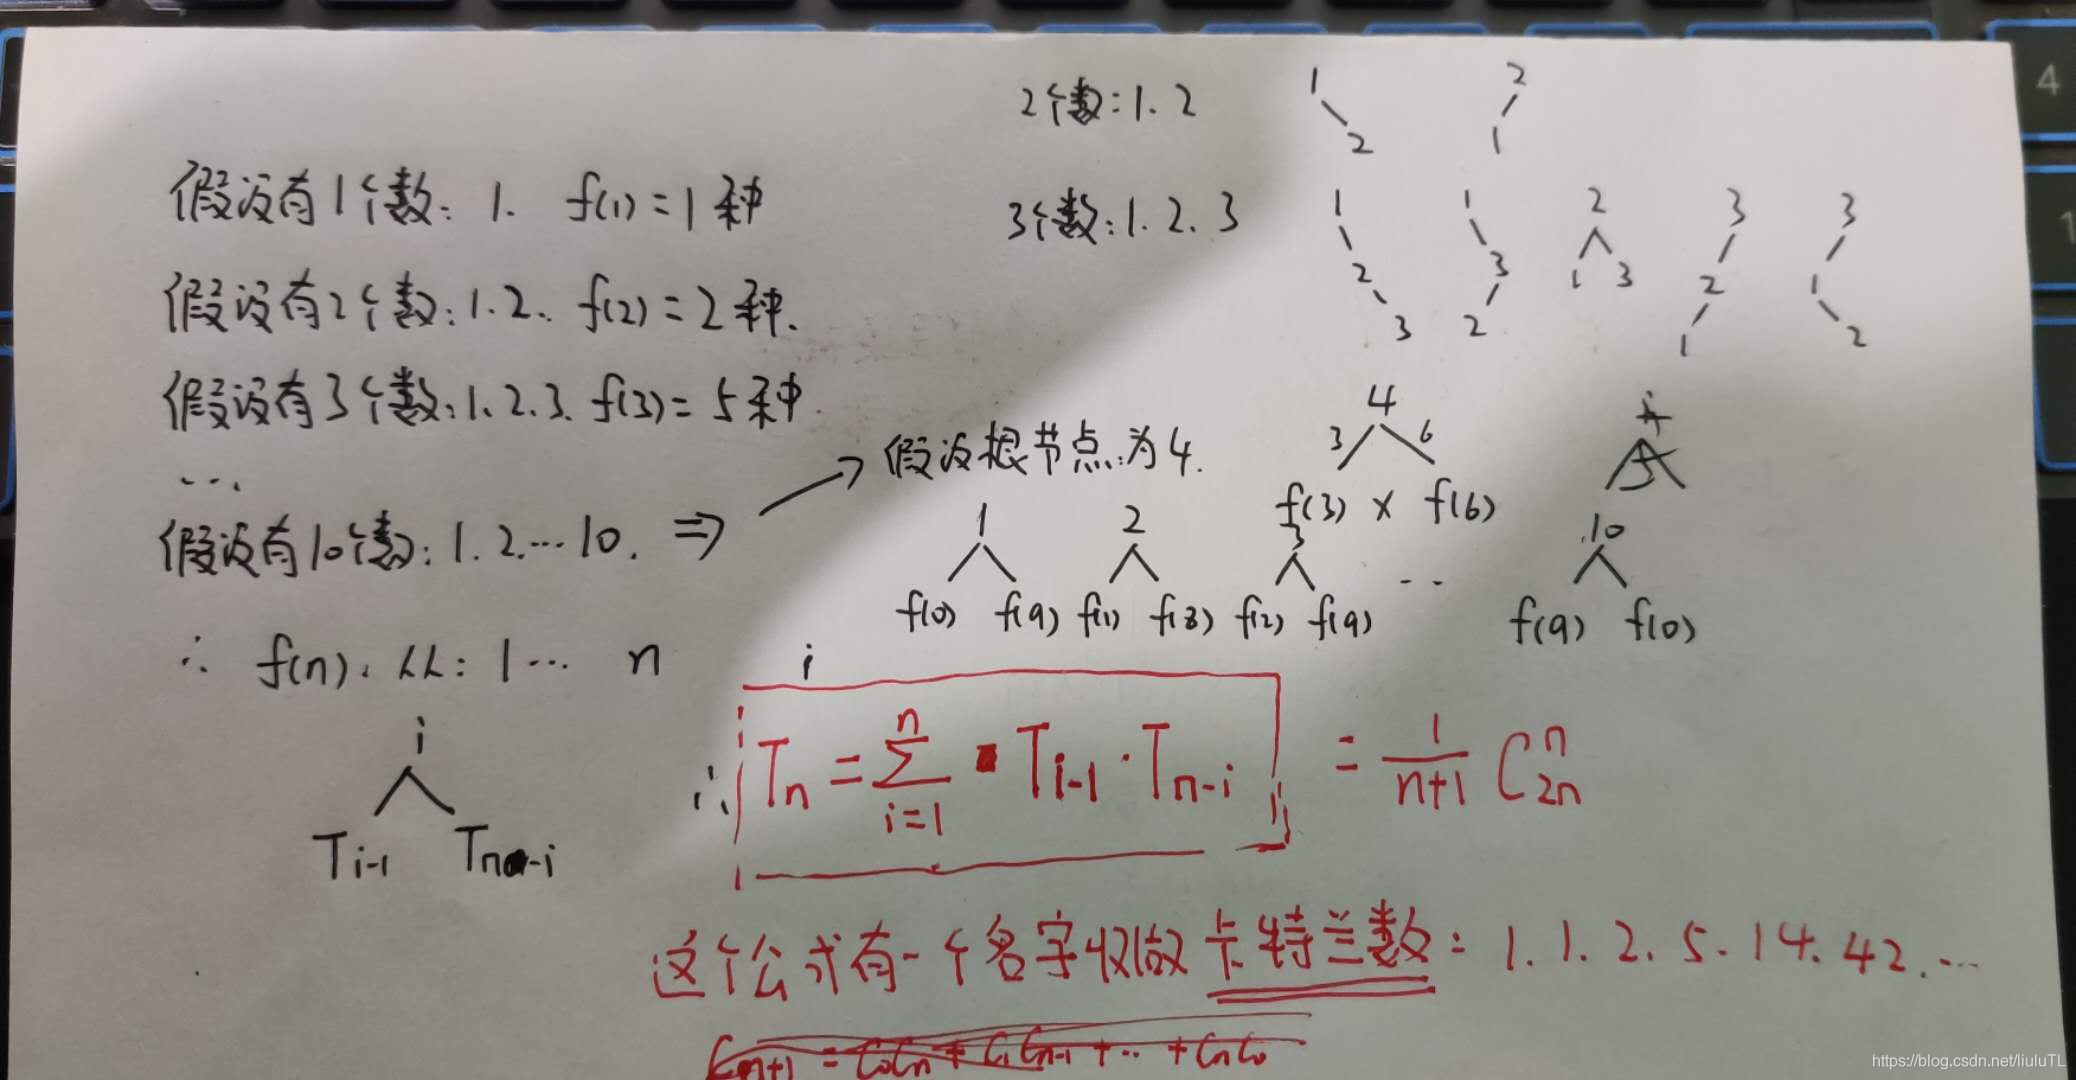 2个数:1.2
1
2
2
1
假设有1个数:1. f(1)=1种
3个数:1.2.3
1
2
3
1
3
2
2
1 3
3
2
1
3
1
2
假设有2个数:1.2. f(2)=2种.
假设有3个数:1.2.3. f(3)=5种
...
假设根节点为4.
4
3 6
f(3) × f(6)
假设有10个数:1.2....10. ⇒
1
f(0) f(9)
2
f(1) f(8)
3
f(2) f(9)
...
10
f(9) f(0)
∴ f(n). 从: 1... n
i
i
Ti-1 Tn-i
∴ Tn = ∑ n i=1 Ti-1 · Tn-i = 1/(n+1) C 2n n
这个公式有一个名字叫做卡特兰数: 1. 1. 2. 5. 14. 42. ...
Cn+1 = C0Cn + C1Cn-1 + ... + CnC0
4
1
https://blog.csdn.net/liuluTL